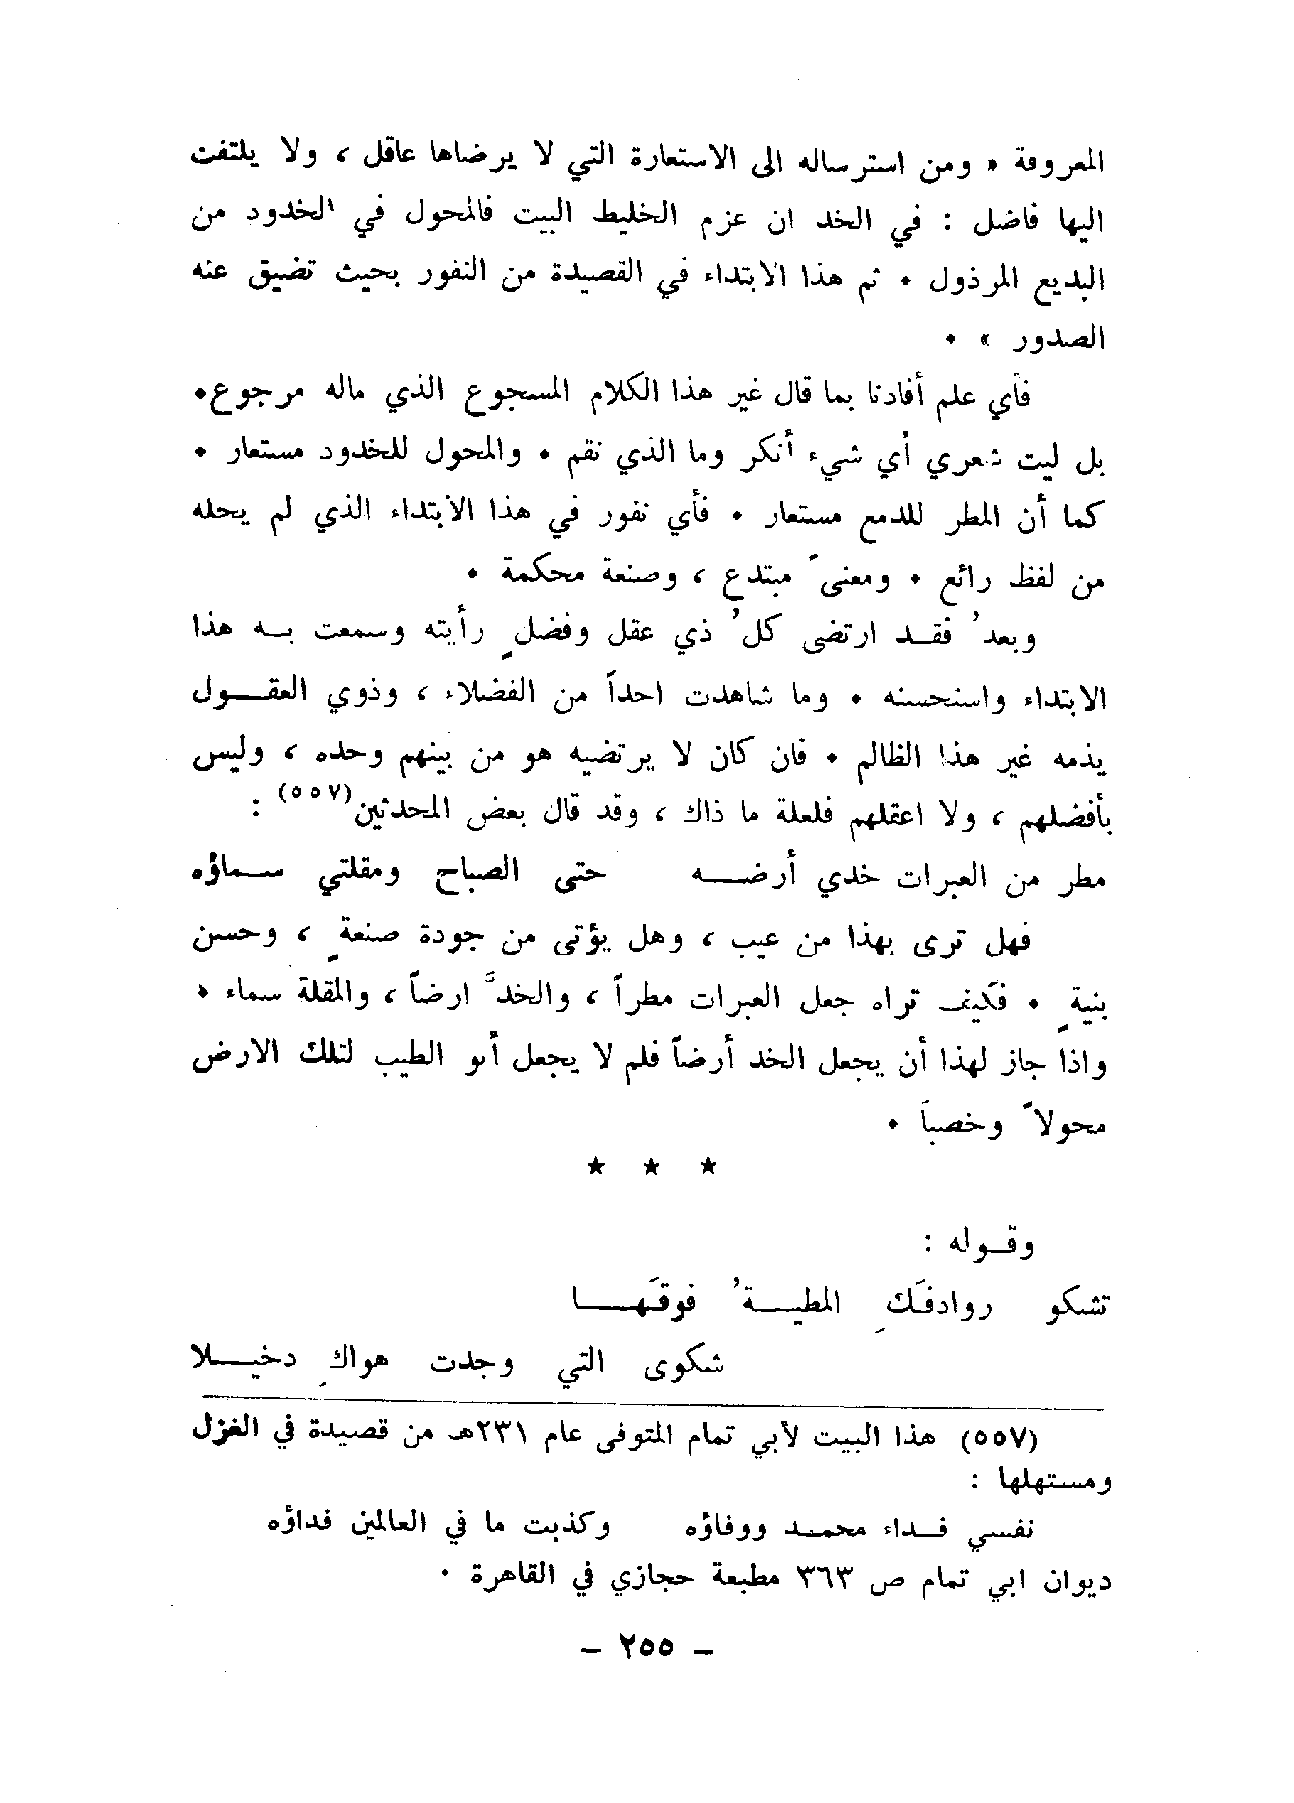 المعروفة • ومن استرساله الى الاستعارة التي لا يرضاها عاقل ، ولا يلتفت
اليها فاضل : في الخد ان عزم الخليط البيت فالمحول في الخدود من
البديع المرذول • ثم هذا الابتداء في القصيدة من النفور بحيث تضيق عنه
الصدور » •
فأي علم أفادنا بما قال غير هذا الكلام المسجوع الذي ماله مرجوع•
بل ليت شعري أي شيء أنكر وما الذي نقم • والمحول للخدود مستعار •
كما أن المطر للدمع مستعار • فأي نفور في هذا الابتداء الذي لم يحله
من لفظ رائع • ومعنىً مبتدع ، وصنعة محكمة •
وبعدُ فقد ارتضى كلُ ذي عقل وفضلٍ رأيته وسمعت به هذا
الابتداء واستحسنه • وما شاهدت احداً من الفضلاء ، وذوي العقول
يذمه غير هذا الظالم • فان كان لا يرتضيه هو من بينهم وحده ، وليس
بأفضلهم ، ولا اعقلهم فلعلة ما ذاك ، وقد قال بعض المحدثين(٥٥٧) :
مطر من العبرات خدي أرضه حتى الصباح ومقلتي سماؤه
فهل ترى بهذا من عيب ، وهل يؤتى من جودة صنعةٍ ، وحسن
بنيةٍ • فكيف تراه جعل العبرات مطراً ، والخدَّ ارضاً ، والمقلة سماء •
واذا جاز لهذا أن يجعل الخد أرضاً فلم لا يجعل أبو الطيب لتلك الارض
محولاً وخصباً •
★ ★ ★
وقوله :
تشكو روادفَكِ المطيةُ فوقَها
شكوى التي وجدت هواكِ دخيلا
(٥٥٧) هذا البيت لأبي تمام المتوفى عام ٢٣١هـ من قصيدة في الغزل
ومستهلها :
نفسي فداء محمد ووفاؤه وكذبت ما في العالمين فداؤه
ديوان ابي تمام ص ٣٦٣ مطبعة حجازي في القاهرة .
– ٢٥٥ –